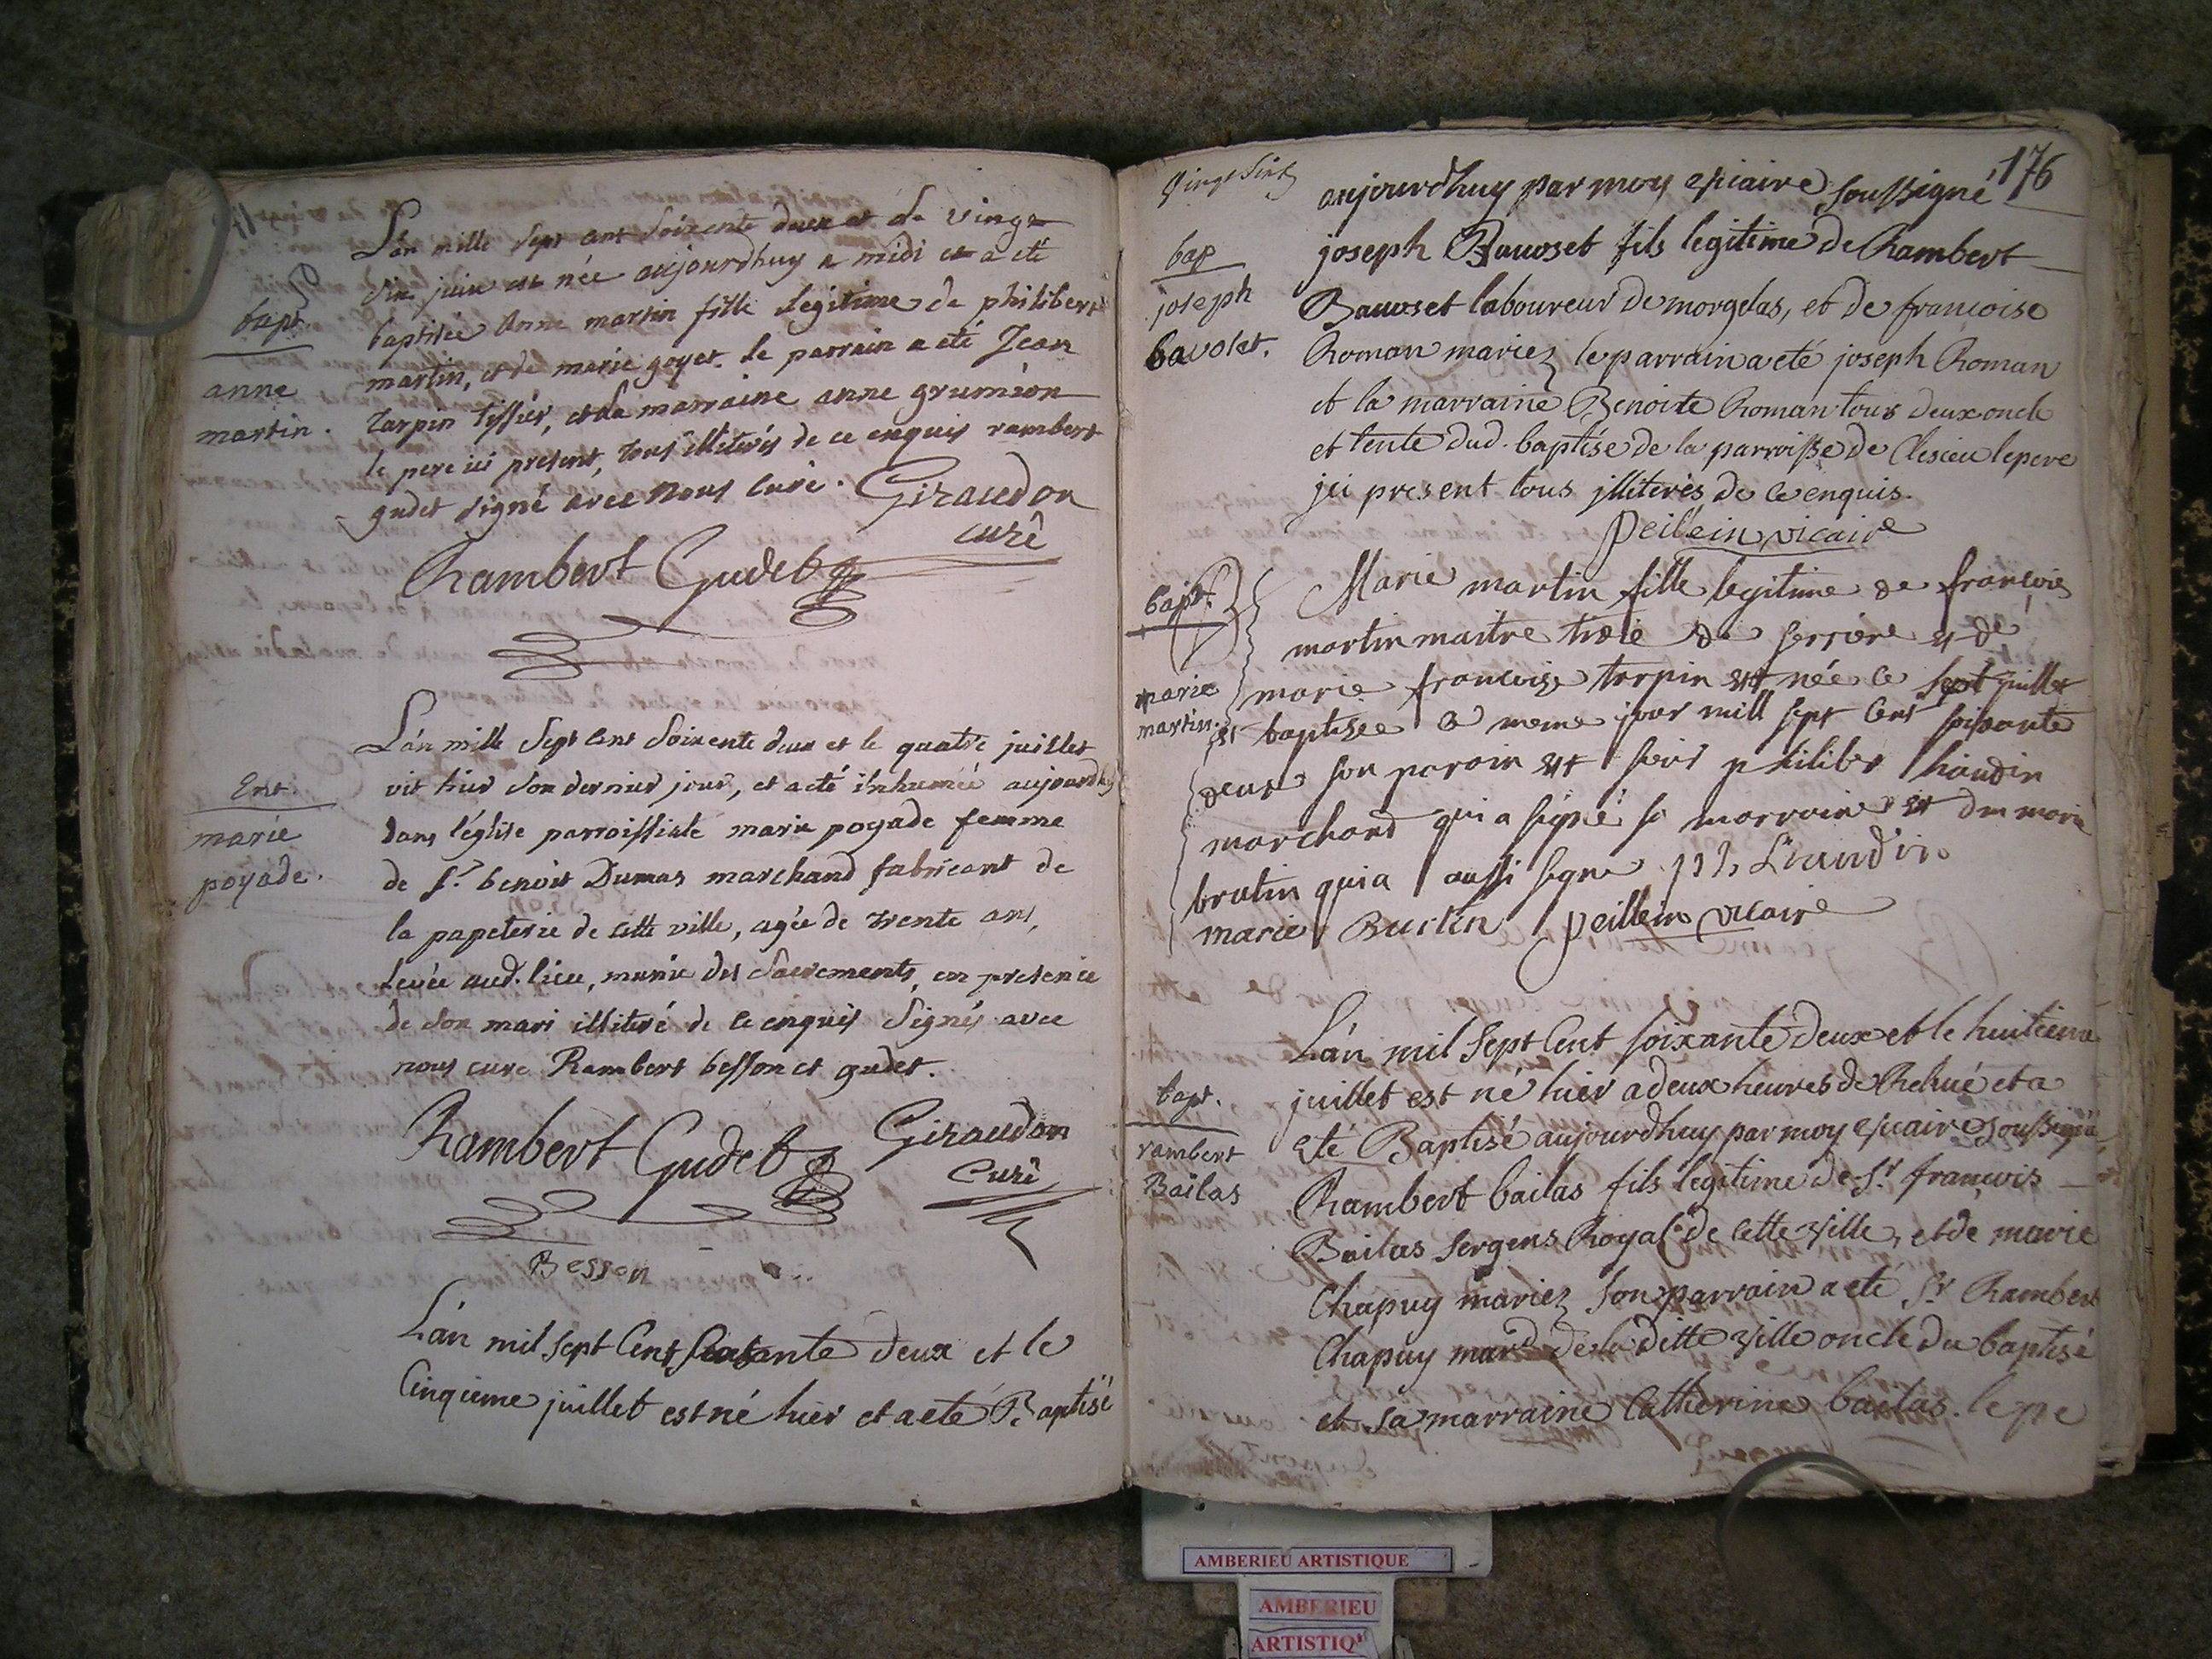 L'an mille sept cent soixente deux et de vingt
six juin est née aujourdhuy a midi et a eté
bapt.
baptisée anne martin fille legitime de philibert
anne
martin.
martin, et de marie goyet. le parrain a eté Jean
tarpin tissier, et la marraine anne grumion
le pere ici present, tous illiterés de ce enquis rambert
gudet signé avec nous curé. Giraudon
curé
Rambert Gudet
L'an mille sept cent soixente deux et le quatre juillet
Ent.
marie
poyade.
vit hier son dernier jour, et a eté inhumée aujourdhuy
dans l'église parroissiale marie poyade femme
de Sr. benoit Dumas marchand fabricant de
la papeterie de cette ville, agée de trente ans,
levée aud. lieu, munie des sacrements, en presence
de son mari illiteré de ce enquis signés avec
nous curé Rambert besson et gudet.
Rambert Gudet Giraudon
Curé
Besson
L'an mil sept Cent soixante deux et le
Cinquieme juillet est né hier et a eté Baptisé
176
aujourdhuy par moy vicaire soussigné
bap
joseph
bavoset.
joseph Bauoset fils legitime de Rambert
Bauoset laboureur de morgelas, et de francoise
Roman mariez le parrain a eté joseph Roman
et la marraine Benoite Roman tous deux oncle
et tente dud. baptisé de la parroisse de Clesieu le pere
jci present tous jlliterés de ce enquis.
peillein vicaire
bapt.
marie
martin.
Marie martin fille legitime de françois
martin maitre de serriere et de
marie françoise tarpin est née le sept juillet
et baptisee le meme jour mill sept cent soixante
deux son parain est sieur philiber liaudin
marchand qui a signé sa marraine est dm marie
brutin qui a aussi signe ph Liaudin
marie Burtin peillein vicaire
L'an mil sept Cent soixante deux et le huitieme
bapt.
rambert
Bailas
juillet est né hier a deux heures de Relué et a
eté Baptisé aujourdhuy par moy vicaire soussigné
Rambert bailas fils legitime de Sr. françois
Bailas sergens Royal de Cette ville, et de marie
Chapuy mariez son parrain a eté Sr. Rambert
Chapuy mard. de la ditte ville oncle du baptisé
et sa marraine Catherine bailas. le pe
AMBERIEU ARTISTIQUE
AMBERIEU
ARTISTIQ